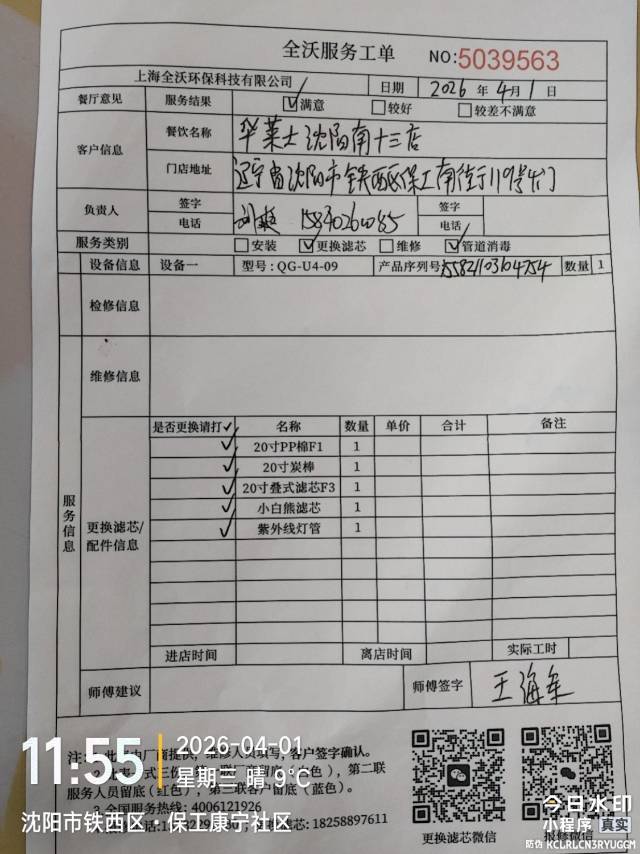 全沃服务工单 NO:5039563
上海全沃环保科技有限公司 日期 2026 年 4 月 1 日
餐厅意见 服务结果 ☑满意 □较好 □较差不满意
客户信息 餐饮名称 华莱士沈阳南十三店
门店地址 辽宁省沈阳市铁西区保工南街119号4门
负责人 签字 签字
电话 电话
服务类别 □安装 ☑更换滤芯 □维修 ☑管道消毒
设备信息 设备一 型号:QG-U4-09 产品序列号 数量 1
检修信息
维修信息
服务信息
更换滤芯/配件信息
是否更换请打✓ 名称 数量 单价 合计 备注
✓ 20寸PP棉F1 1
✓ 20寸炭棒 1
✓ 20寸叠式滤芯F3 1
✓ 小白熊滤芯 1
✓ 紫外线灯管 1
进店时间 离店时间 实际工时
师傅建议 师傅签字 王海军
客户签字确认。
服务人员留底(红色),
留底(蓝色)。
3.全国服务热线:4006121926
18258897611
更换滤芯微信 报修微信
11:55 2026-04-01
星期三 晴 9℃
沈阳市铁西区·保工康宁社区
今日水印
小程序 真实
防伪 KCLRLCN3RYUGGM